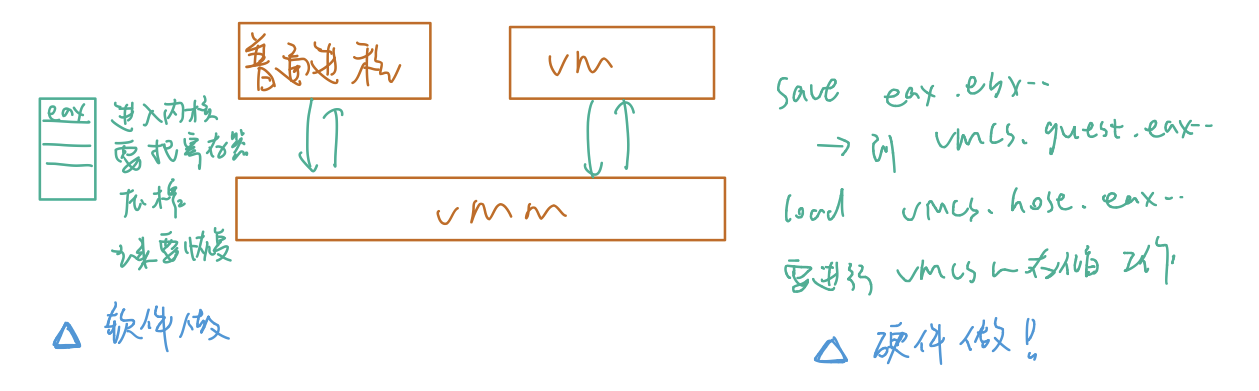 普通进程
vm
eax
进入内核
要把寄存器
压栈
出来要恢复
vmm
save eax.ebx...
→到 vmcs.guest.eax...
load vmcs.hose.eax...
要进行 vmcs
△ 软件做
△ 硬件做!